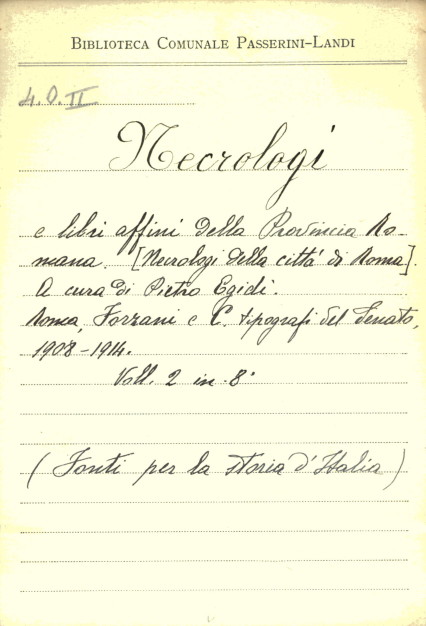 BIBLIOTECA COMUNALE PASSERINI-LANDI
4.O.II
Necrologi
e libri affini della Provincia Ro-
mana. [Necrologi della città di Roma].
A cura di Pietro Egidi.
Roma, Forzani e C. tipografi del Senato,
1908-1914.
Voll. 2 in 8°
(Fonti per la storia d'Italia)